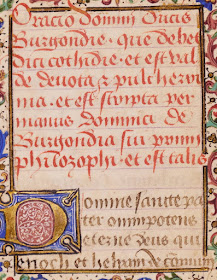 Oracio domini Ducis
Burgondie. que debet
dici cothidie. et est val
de devota. et pulcherri
ma. et est scripta per
manus dominici de
Burgondia sui primi
philozophi. et est talis
Domine sancte pa
ter omnipotens
eterne deus qui
enoch et heliam de comuni